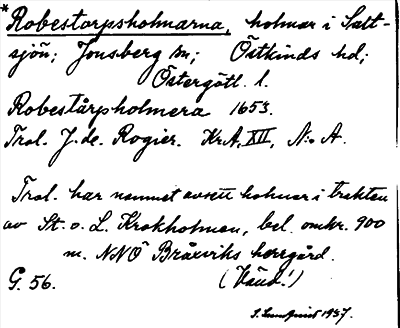 *Robestorpsholmarna, holmar i Sätt-
sjön; Jonsberg sn; Östkinds hd;
Östergötl. l.
Robestårpholmera 1653.
Trol. J. de. Rogier. Kr.A, XIII, N:o A.
Trol. har namnet avsett holmar i trakten
av St. o. L. Krokholmen, bel. omkr. 900
m. NNÖ Bråxviks herrgård.
G. 56. (Vänd!)
S. Lundquist 1937.